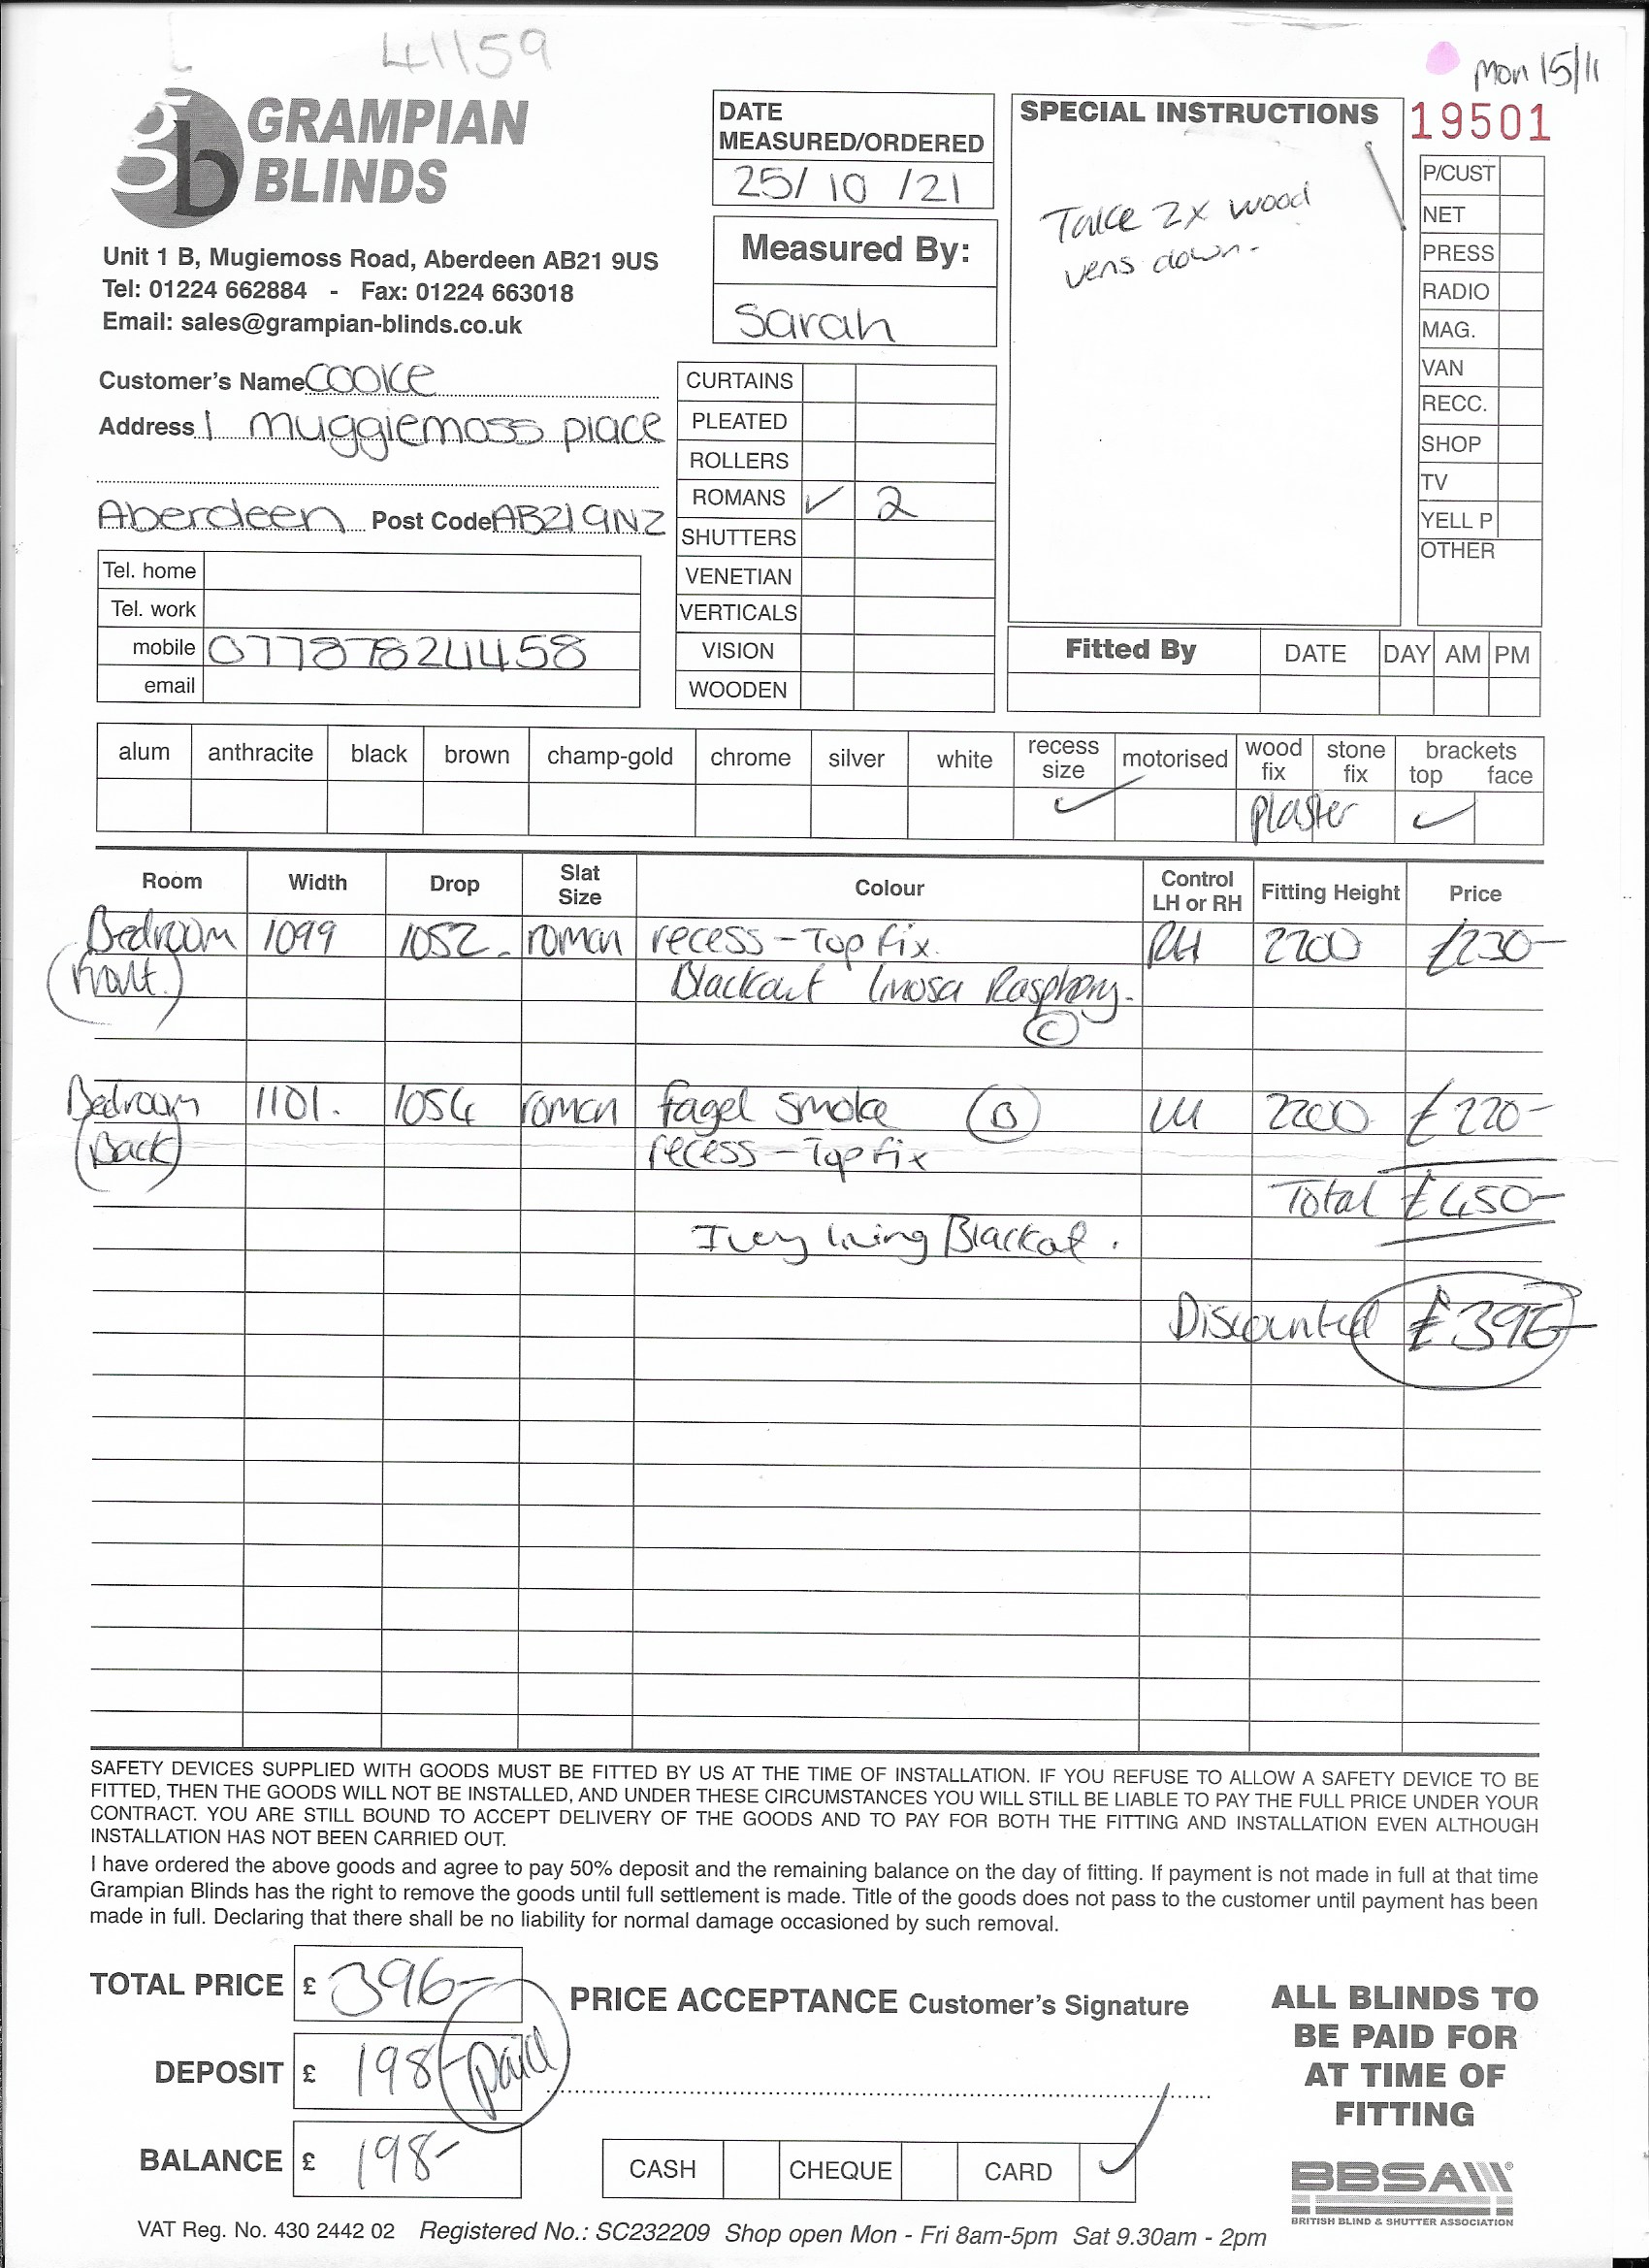 41159
Mon 15/11
gb GRAMPIAN
BLINDS
Unit 1 B, Mugiemoss Road, Aberdeen AB21 9US
Tel: 01224 662884 - Fax: 01224 663018
Email: sales@grampian-blinds.co.uk
DATE
MEASURED/ORDERED
25/10/21
Measured By:
Sarah
SPECIAL INSTRUCTIONS
Take 2x wood
vens down-
19501
P/CUST
NET
PRESS
RADIO
MAG.
VAN
RECC.
SHOP
TV
YELL P
OTHER
Customer's Name Cooke
Address 1 muggiemoss place
Aberdeen Post Code AB21 9NZ
Tel. home
Tel. work
mobile 07787824458
email
CURTAINS
PLEATED
ROLLERS
ROMANS ✓ 2
SHUTTERS
VENETIAN
VERTICALS
VISION
WOODEN
Fitted By DATE DAY AM PM
alum anthracite black brown champ-gold chrome silver white recess size motorised wood fix stone fix brackets top face
✓ plaster ✓
Room Width Drop Slat Size Colour Control LH or RH Fitting Height Price
Bedroom 1099 1052 roman recess - Top fix. RH 2200 £230-
(Front) Blackout Raspberry.
C
Bedroom 1101. 1054 roman fagel smoke B LH 2200 £220-
(Back) recess - Top fix
Total £450-
Ivory lining Blackout.
Discounted £396-
SAFETY DEVICES SUPPLIED WITH GOODS MUST BE FITTED BY US AT THE TIME OF INSTALLATION. IF YOU REFUSE TO ALLOW A SAFETY DEVICE TO BE
FITTED, THEN THE GOODS WILL NOT BE INSTALLED, AND UNDER THESE CIRCUMSTANCES YOU WILL STILL BE LIABLE TO PAY THE FULL PRICE UNDER YOUR
CONTRACT. YOU ARE STILL BOUND TO ACCEPT DELIVERY OF THE GOODS AND TO PAY FOR BOTH THE FITTING AND INSTALLATION EVEN ALTHOUGH
INSTALLATION HAS NOT BEEN CARRIED OUT.
I have ordered the above goods and agree to pay 50% deposit and the remaining balance on the day of fitting. If payment is not made in full at that time
Grampian Blinds has the right to remove the goods until full settlement is made. Title of the goods does not pass to the customer until payment has been
made in full. Declaring that there shall be no liability for normal damage occasioned by such removal.
TOTAL PRICE £ 396-
DEPOSIT £ 198- paid
BALANCE £ 198-
PRICE ACCEPTANCE Customer's Signature
CASH CHEQUE CARD ✓
ALL BLINDS TO
BE PAID FOR
AT TIME OF
FITTING
BBSA
BRITISH BLIND & SHUTTER ASSOCIATION
VAT Reg. No. 430 2442 02 Registered No.: SC232209 Shop open Mon - Fri 8am-5pm Sat 9.30am - 2pm